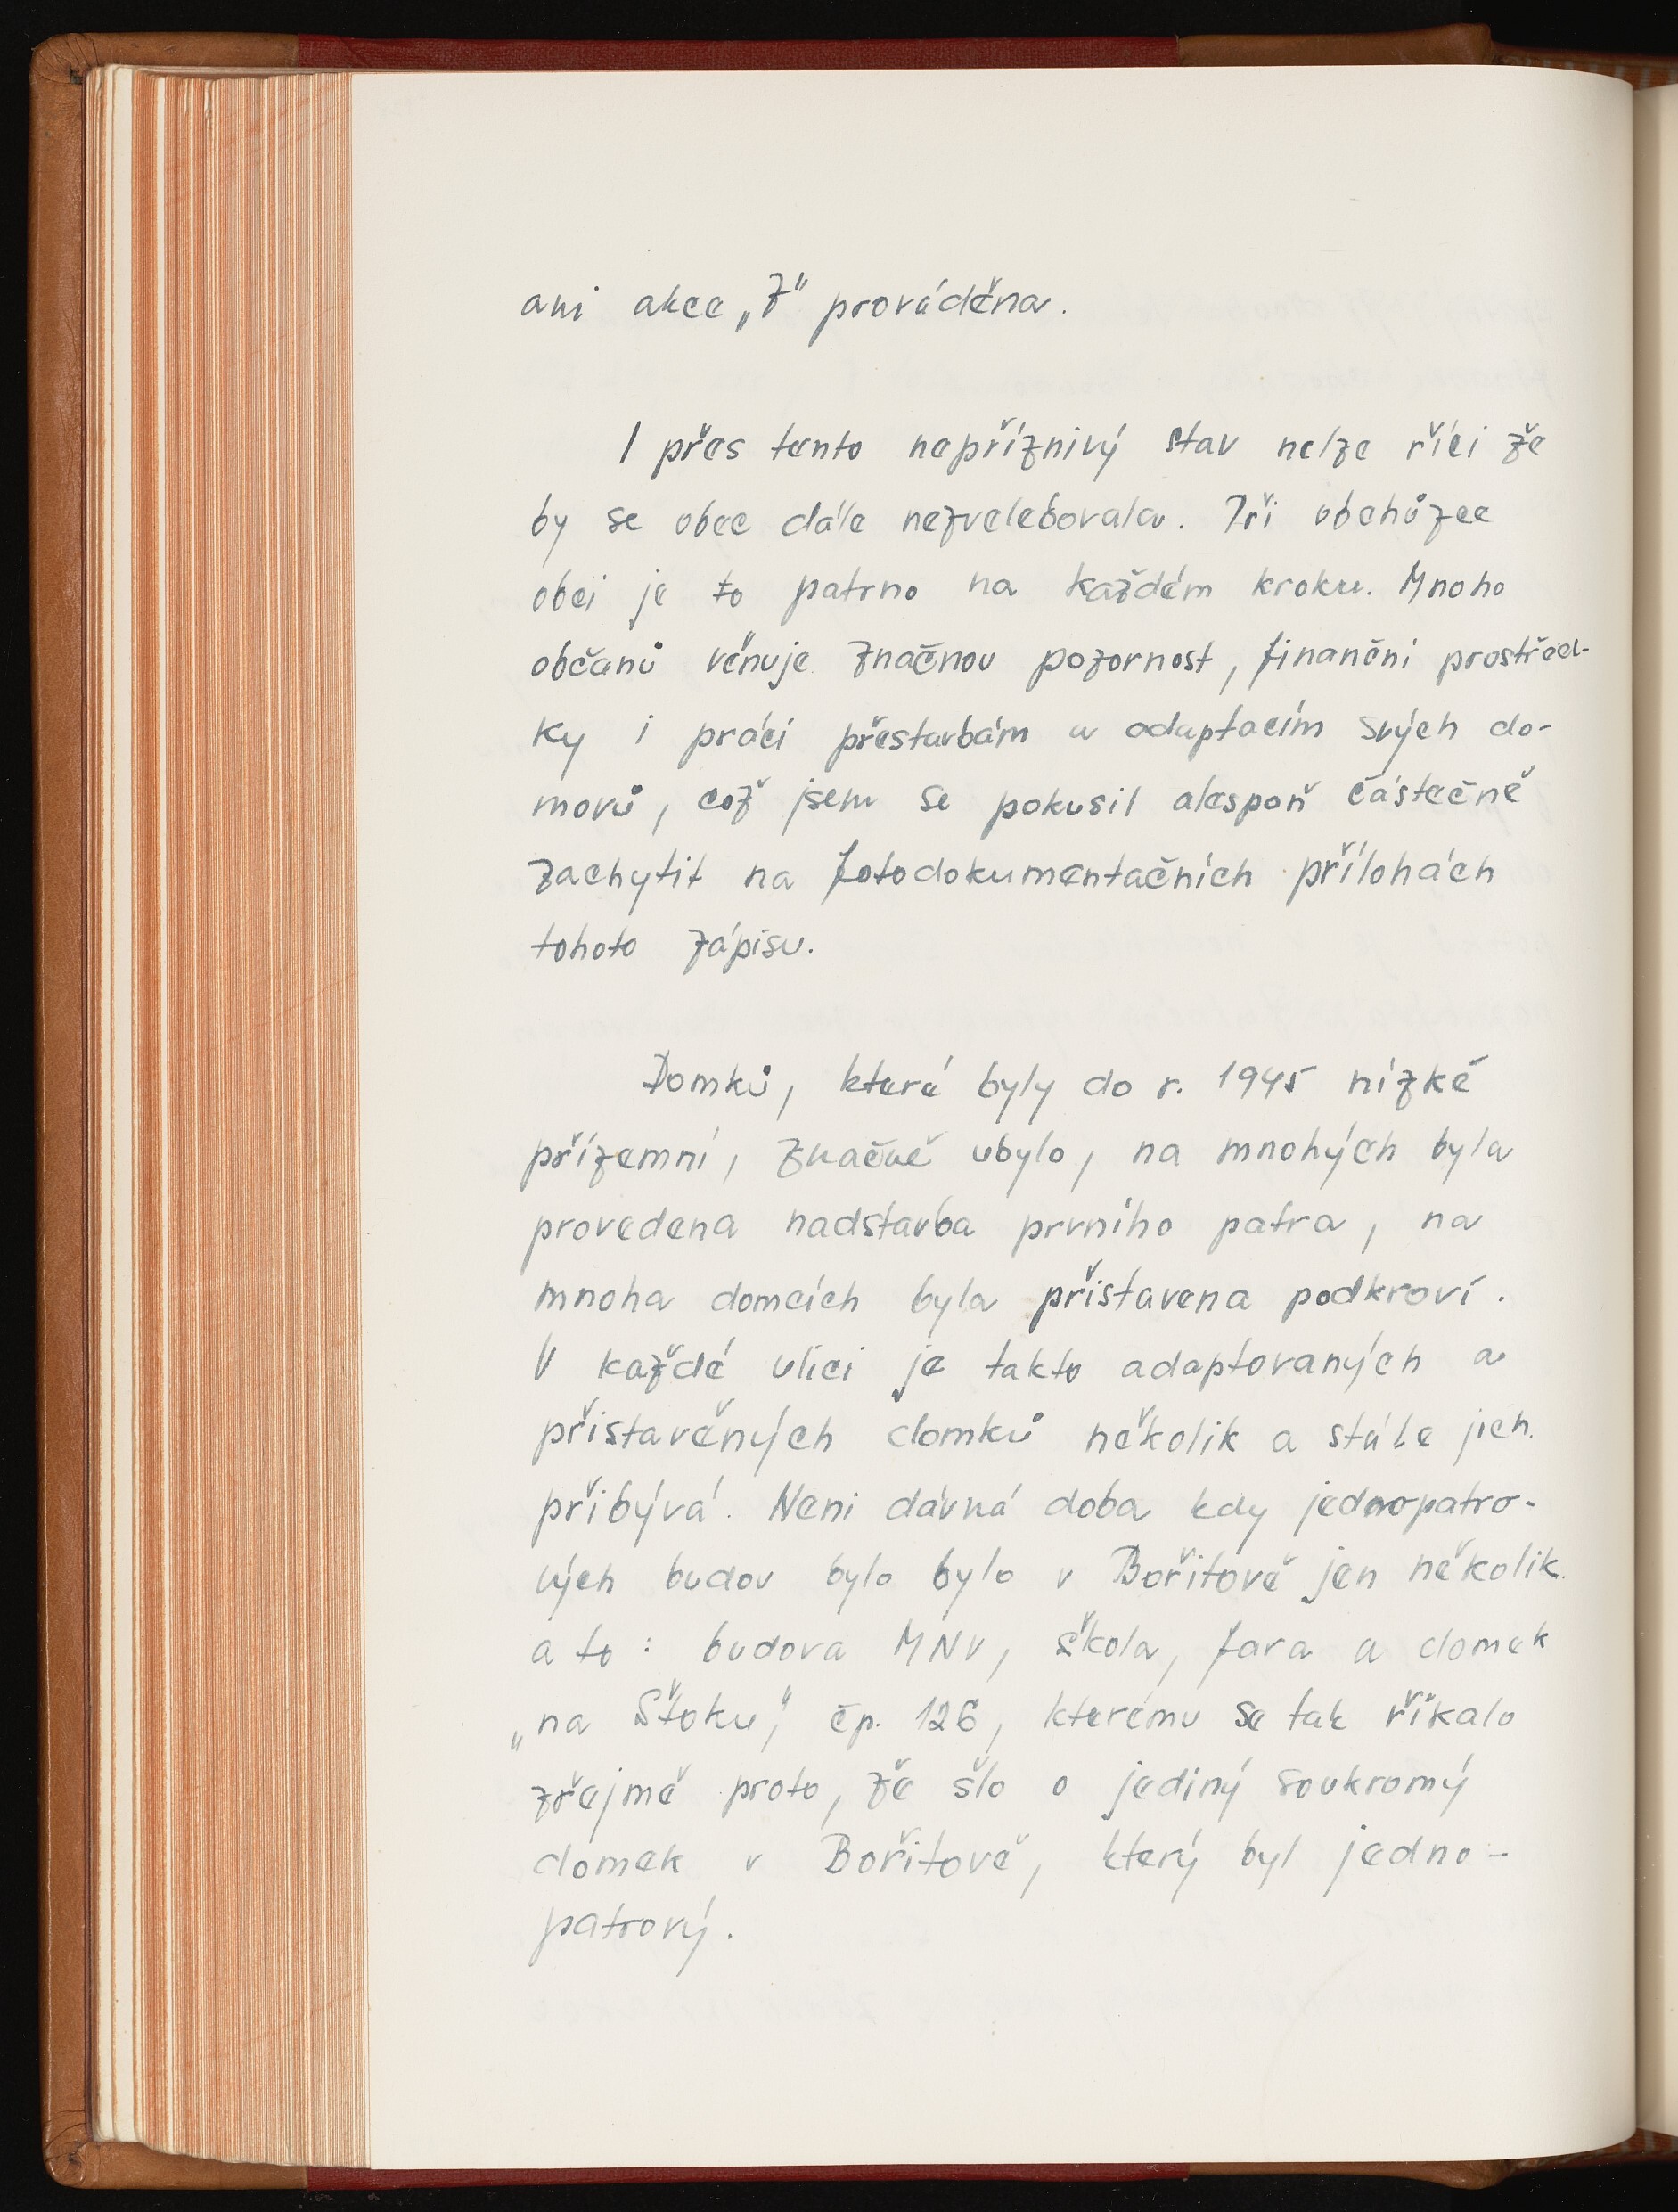 ani akce „Z" prováděna.
I přes tento nepříznivý stav nelze říci že
by se obec dále nezvelebovala. Při obchůzce
obci je to patrno na každém kroku. Mnoho
občanů věnuje značnou pozornost, finanční prostřed-
ky i práci přestavbám a adaptacím svých do-
movů, což jsem se pokusil alespoň částečně
zachytit na fotodokumentačních přílohách
tohoto zápisu.
Domků, které byly do r. 1945 nízké
přízemní, značně ubylo, na mnohých byla
provedena nadstavba prvního patra, na
mnoha domcích byla přistavena podkroví.
V každé ulici je takto adaptovaných a
přistavěných domků několik a stále jich
přibývá. Není dávná doba kdy jednopatro-
vých budov bylo bylo v Bořitově jen několik
a to: budova MNV, škola, fara a domek
„na Štoku," čp. 126, kterému se tak říkalo
zřejmě proto, že šlo o jediný soukromý
domek v Bořitově, který byl jedno-
patrový.